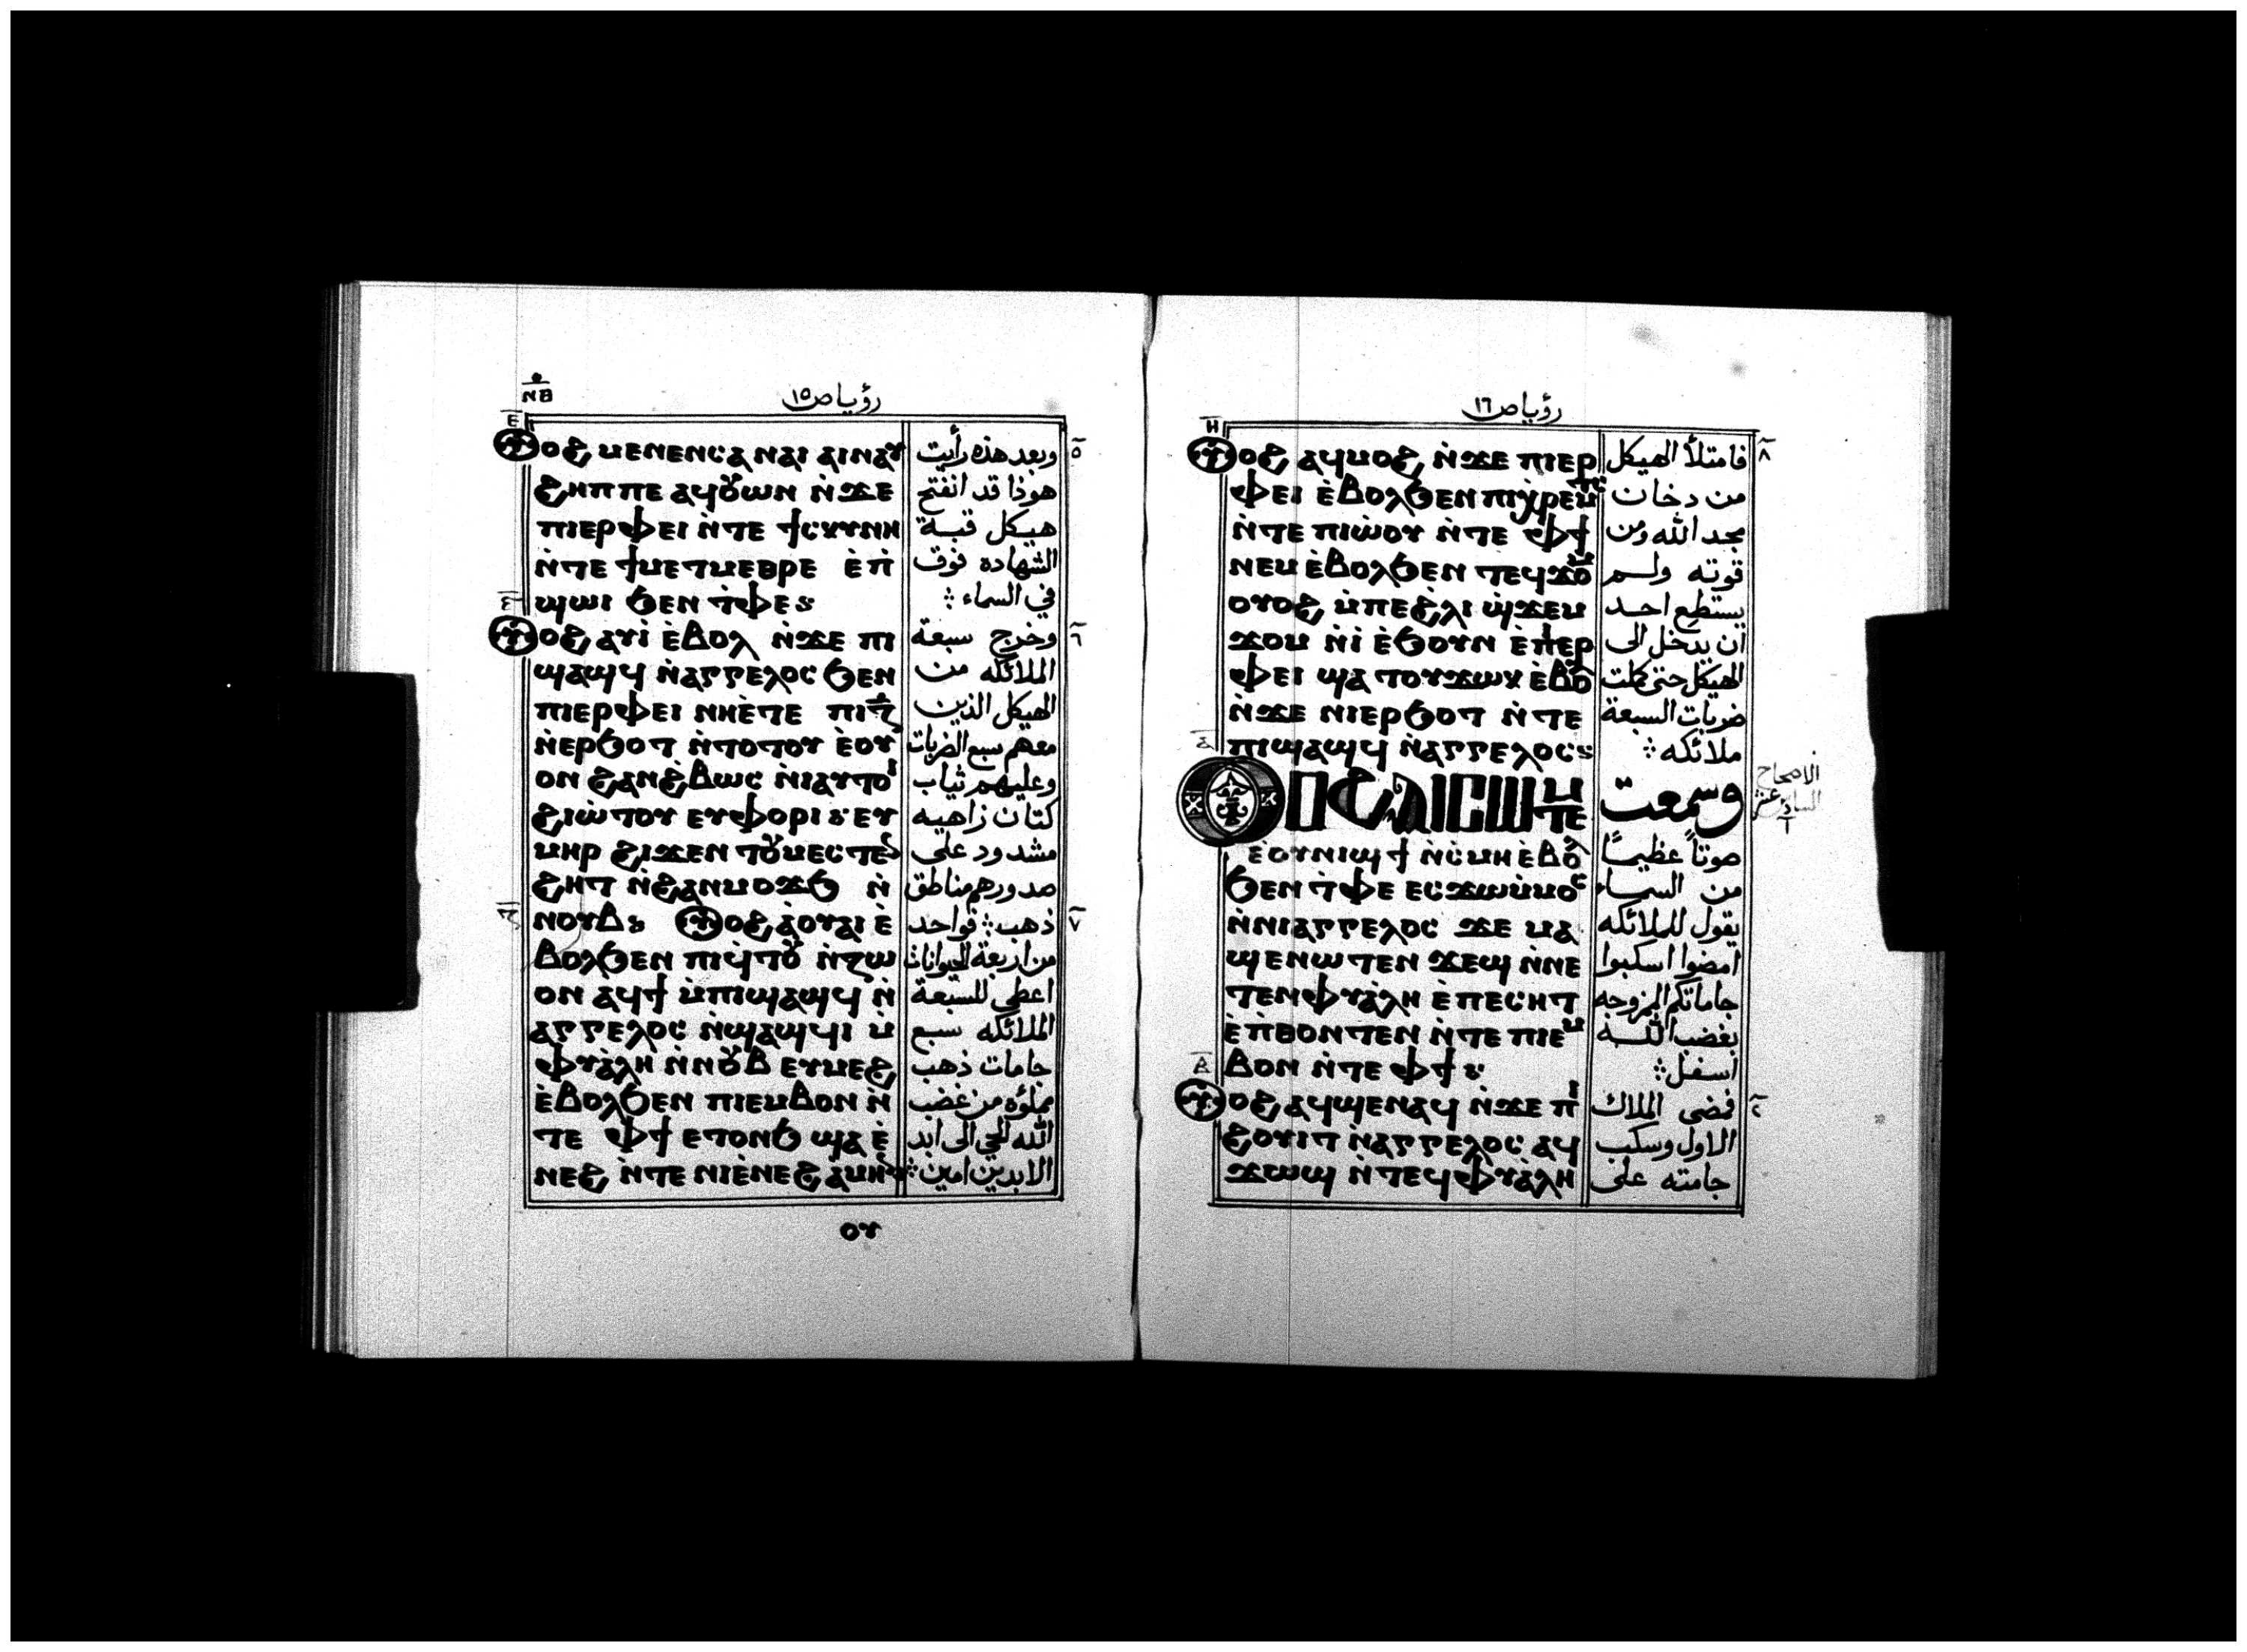 ⲛⲃ
رؤيا ص ١٥
ⲉ
ⲟⲩⲟϩ ⲙⲉⲛⲉⲛⲥⲁ ⲛⲁⲓ ⲁⲓⲛⲁⲩ
ϩⲏⲡⲡⲉ ⲁϥⲟⲩⲱⲛ ⲛ̀ϫⲉ
ⲡⲓⲉⲣⲫⲉⲓ ⲛ̀ⲧⲉ ϯⲥⲕⲩⲛⲏ
ⲛ̀ⲧⲉ ϯⲙⲉⲧⲙⲉⲑⲣⲉ ⲉ̀ⲡ̀
ϣⲱⲓ ϧⲉⲛ ⲧ̀ⲫⲉ
ⲟⲩⲟϩ ⲁⲩⲓ̀ ⲉ̀ⲃⲟⲗ ⲛ̀ϫⲉ ⲡⲓ
ϣⲁϣϥ ⲛ̀ⲁⲅⲅⲉⲗⲟⲥ ϧⲉⲛ
ⲡⲓⲉⲣⲫⲉⲓ ⲛⲏⲉ̀ⲧⲉ ⲡⲓⲍ̅
ⲛ̀ⲉⲣϧⲟⲧ ⲛ̀ⲧⲟⲧⲟⲩ ⲉ̀ⲟⲩ
ⲟⲛ ϩⲁⲛϩ̀ⲃⲱⲥ ⲛ̀ⲓⲁⲩⲧⲟⲓ
ϩⲓⲱ̀ⲧⲟⲩ ⲉⲩⲫⲟⲣⲓ ⲉⲩ
ⲙⲏⲣ ϩⲓϫⲉⲛ ⲧⲟⲩⲙⲉⲥⲧⲉⲛ
ϩⲏⲧ ⲛ̀ϩⲁⲛⲙⲟϫϧ ⲛ̀
ⲛⲟⲩⲃ ⲟⲩⲟϩ ⲁ̀ⲟⲩⲁⲓ ⲉ̀
ⲃⲟⲗϧⲉⲛ ⲡⲓϥ̀ⲧⲟⲩ ⲛ̀ⲍⲱ
ⲟⲛ ⲁϥϯ ⲙ̀ⲡⲓϣⲁϣϥ ⲛ̀
ⲁⲅⲅⲉⲗⲟⲥ ⲛ̀ϣⲁϣϥⲓ ⲙ̀
ⲫⲩⲁ̀ⲗⲏ ⲛ̀ⲛⲟⲩⲃ ⲉⲩⲙⲉϩ
ⲉ̀ⲃⲟⲗϧⲉⲛ ⲡⲓⲉⲙⲃⲟⲛ ⲛ̀
ⲧⲉ ⲫϯ ⲉⲧⲟⲛϧ ϣⲁ ⲉ̀
ⲛⲉϩ ⲛ̀ⲧⲉ ⲛⲓⲉ̀ⲛⲉϩ ⲁⲙⲏⲛ
٥
وبعد هذه رأيت
هوذا قد انفتح
هيكل قبة
الشهادة فوق
في السماء
٦
وخرج سبعة
الملائكه من
الهيكل الذين
معهم سبع الضربات
وعليهم ثياب
كتان زاهيه
مشدود على
صدورهم مناطق
٧
ذهب فواحد
من اربعة الحيوانات
اعطى للسبعة
الملائكه سبع
جامات ذهب
مملؤه من غضب
الله الحي الى ابد
الابدين امين
ⲟⲩ
رؤيا ص ١٦
ⲏ
ⲟⲩⲟϩ ⲁϥⲙⲟϩ ⲛ̀ϫⲉ ⲡⲓⲉⲣ
ⲫⲉⲓ ⲉ̀ⲃⲟⲗϧⲉⲛ ⲡⲓⲭ̀ⲣⲉⲙⲧⲥ
ⲛ̀ⲧⲉ ⲡⲓⲱ̀ⲟⲩ ⲛ̀ⲧⲉ ⲫϯ
ⲛⲉⲙ ⲉ̀ⲃⲟⲗϧⲉⲛ ⲧⲉϥϫⲟⲙ
ⲟⲩⲟϩ ⲙ̀ⲡⲉϩ̀ⲗⲓ ϣ̀ϫⲉⲙ
ϫⲟⲙ ⲛ̀ⲓ̀ ⲉ̀ϧⲟⲩⲛ ⲉ̀ⲡⲓⲉⲣ
ⲫⲉⲓ ϣⲁ ⲧⲟⲩϫⲱⲕ ⲉ̀ⲃⲟⲗ
ⲛ̀ϫⲉ ⲛⲓⲉⲣϧⲟⲧ ⲛ̀ⲧⲉ
ⲡⲓϣⲁϣϥ ⲛ̀ⲁⲅⲅⲉⲗⲟⲥ
ⲁ
ⲟⲩⲟϩ ⲁⲓⲥⲱⲧⲉⲙ
ⲉ̀ⲟⲩⲛⲓϣϯ ⲛ̀ⲥ̀ⲙⲏ ⲉ̀ⲃⲟⲗ
ϧⲉⲛ ⲧ̀ⲫⲉ ⲉⲥϫⲱⲙ̀ⲙⲟⲥ
ⲛ̀ⲛⲓⲁⲅⲅⲉⲗⲟⲥ ϫⲉ ⲙⲁ
ϣⲉⲛⲱⲧⲉⲛ ϫⲉϣ ⲛ̀ⲛⲉ
ⲧⲉⲛⲫⲩⲁ̀ⲗⲏ ⲉ̀ⲡⲉⲥⲏⲧ
ⲉ̀ⲡ̀ⲑⲟⲛⲧⲉⲛ ⲛ̀ⲧⲉ ⲡⲓⲉⲙ
ⲃⲟⲛ ⲛ̀ⲧⲉ ⲫϯ
ⲃ
ⲟⲩⲟϩ ⲁϥϣⲉⲛⲁϥ ⲛ̀ϫⲉ ⲡⲓ
ϩⲟⲩⲓⲧ ⲛ̀ⲁⲅⲅⲉⲗⲟⲥ ⲁϥ
ϫⲱϣ ⲛ̀ⲧⲉϥⲫⲩⲁ̀ⲗⲏ
٨
فامتلأ الهيكل
من دخان
مجد الله ومن
قوته ولم
يستطع احد
ان يدخل الى
الهيكل حتى كملت
ضربات السبعة
ملائكه
الاصحاح
السادس عشر
١
وسمعت
صوتاً عظيماً
من السماء
يقول للملائكه
امضوا اسكبوا
جاماتكم الممزوجه
بغضب الله
اسفل
٢
فمضى الملاك
الاول وسكب
جامته على